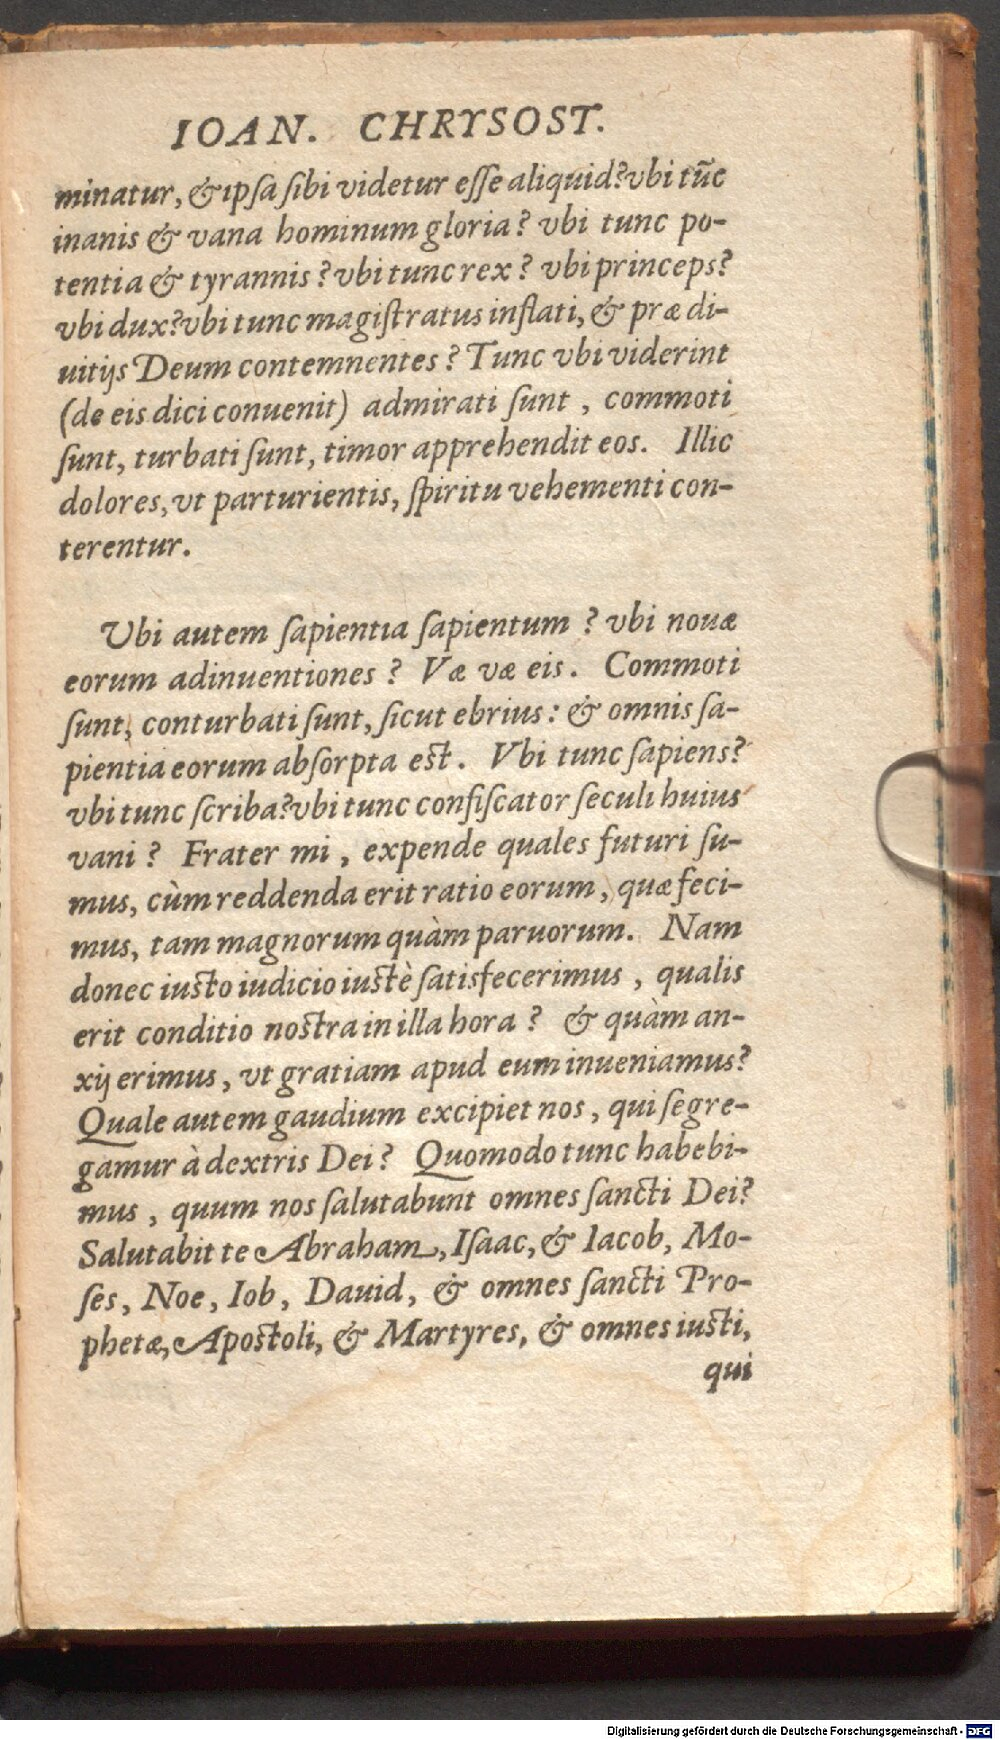 IOAN. CHRYSOST.
minatur, & ipsa sibi videtur esse aliquid? vbi tūc
inanis & vana hominum gloria? vbi tunc po-
tentia & tyrannis? vbi tunc rex? vbi princeps?
vbi dux? vbi tunc magistratus inflati, & præ di-
uitijs Deum contemnentes? Tunc vbi viderint
(de eis dici conuenit) admirati sunt, commoti
sunt, turbati sunt, timor apprehendit eos. Illic
dolores, vt parturientis, spiritu vehementi con-
terentur.
Vbi autem sapientia sapientum? vbi nouæ
eorum adinuentiones? Væ væ eis. Commoti
sunt, conturbati sunt, sicut ebrius: & omnis sa-
pientia eorum absorpta est. Vbi tunc sapiens?
vbi tunc scriba? vbi tunc confiscator seculi huius
vani? Frater mi, expende quales futuri su-
mus, cùm reddenda erit ratio eorum, quæ feci-
mus, tam magnorum quàm paruorum. Nam
donec iusto iudicio iustè satisfecerimus, qualis
erit conditio nostra in illa hora? & quàm an-
xij erimus, vt gratiam apud eum inueniamus?
Quale autem gaudium excipiet nos, qui segre-
gamur à dextris Dei? Quomodo tunc habebi-
mus, quum nos salutabunt omnes sancti Dei?
Salutabit te Abraham, Isaac, & Iacob, Mo-
ses, Noe, Iob, Dauid, & omnes sancti Pro-
phetæ, Apostoli, & Martyres, & omnes iusti,
qui
Digitalisierung gefördert durch die Deutsche Forschungsgemeinschaft - DFG